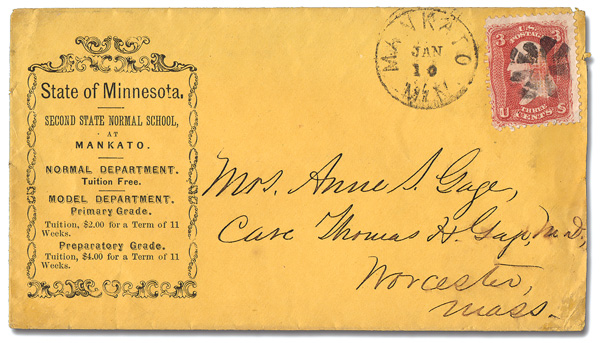 State of Minnesota,
SECOND STATE NORMAL SCHOOL,
AT
MANKATO.
NORMAL DEPARTMENT.
Tuition Free.
MODEL DEPARTMENT.
Primary Grade.
Tuition, $2.00 for a Term of 11
Weeks.
Preparatory Grade.
Tuition, $4.00 for a Term of 11
Weeks.
MANKATO
JAN
10
MIN.
3 3
U.S. POSTAGE
U THREE S
CENTS
Mrs. Anne S. Gage,
Care Thomas H. Gage, M.D.,
Worcester,
Mass.